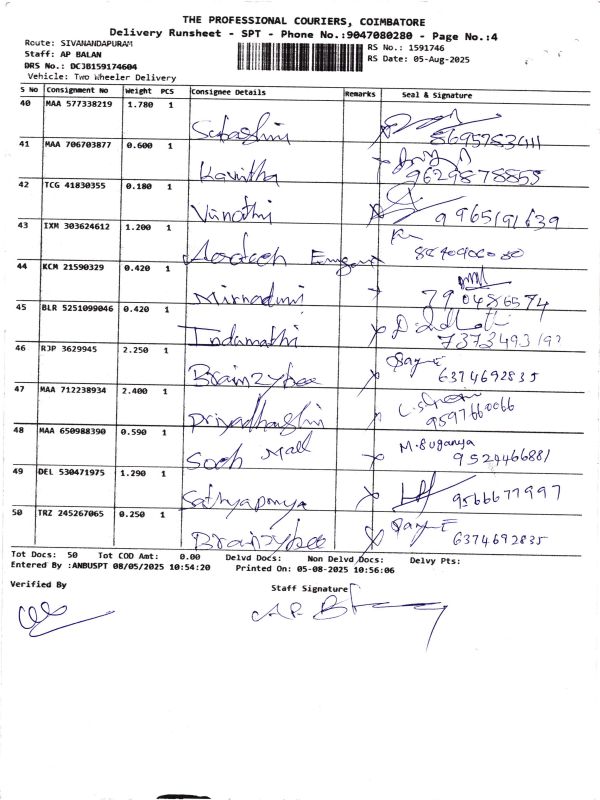 THE PROFESSIONAL COURIERS, COIMBATORE
Delivery Runsheet - SPT - Phone No.:9047080280 - Page No.:4
Route: SIVANANDAPURAM
Staff: AP BALAN
DRS No.: DCJB159174604
Vehicle: Two Wheeler Delivery
RS No.: 1591746
RS Date: 05-Aug-2025
S No Consignment No Weight PCS Consignee Details Remarks Seal & Signature
40 MAA 577338219 1.780 1 Subashini
41 MAA 706703877 0.600 1 Kavitha 9629878855
42 TCG 41830355 0.180 1 Vinothi 9965191639
43 IXM 303624612 1.200 1
44 KCM 21590329 0.420 1 7904865574
45 BLR 5251099046 0.420 1 Indumathi
46 RJP 3629945 2.250 1 Brainzybee 6374692835
47 MAA 712238934 2.400 1 Priyadharshini 9597660066
48 MAA 650988390 0.590 1 Mall M.Suganya 9524466881
49 DEL 530471975 1.290 1 Sathyapriya 9566677997
50 TRZ 245267065 0.250 1 Brainzybee 6374692835
Tot Docs: 50 Tot COD Amt: 0.00 Delvd Docs: Non Delvd Docs: Delvy Pts:
Entered By :ANBUSPT 08/05/2025 10:54:20 Printed On: 05-08-2025 10:56:06
Verified By Staff Signature